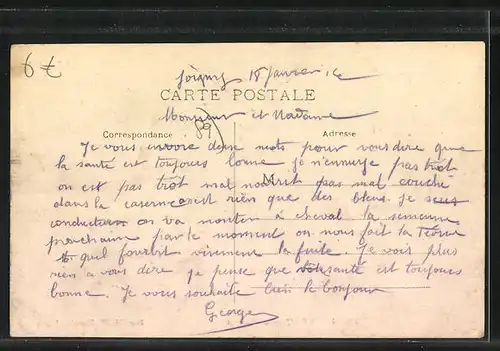 6 €
Joigny 18 Janvier 16
CARTE POSTALE
Monsieur et Madame
Correspondance
Adresse
Je vous envoie deux mots pour vous dire que
la santé est toujours bonne je n'ennuye pas trôt
on est pas trôt mal nourrit pas mal couché
M
dans la caserne rien que des bleus je suis
conducteur on va monten à cheval la semaine
prochaine par le moment on nous fait la
quel fourbit vivement la fuite. Je vois plus
rien a vous dire je pense que votre santé est toujours
bonne. Je vous souhaite bien le bonjour
Georges